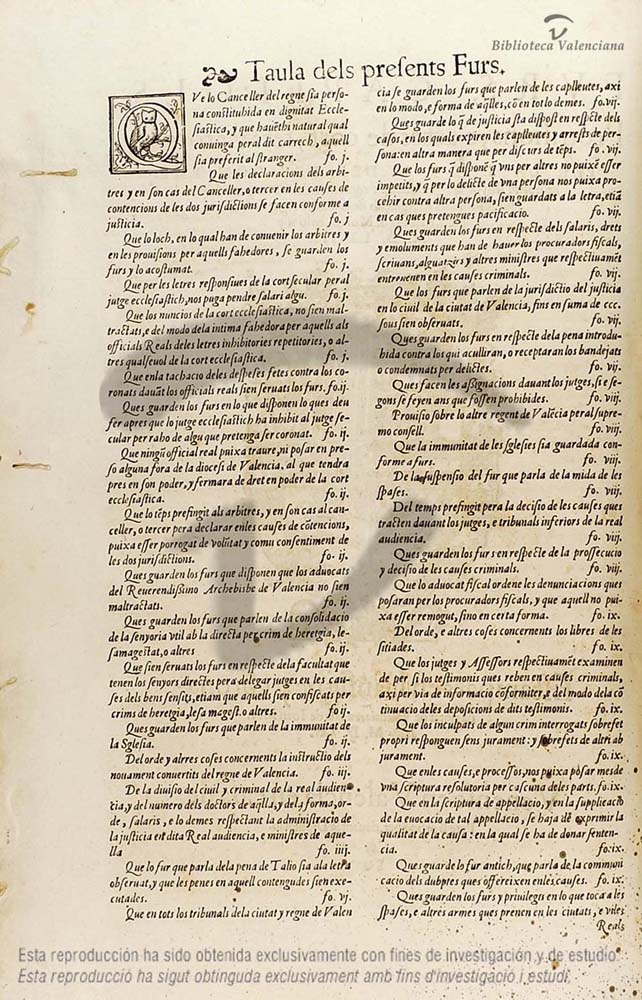 Biblioteca Valenciana
Taula dels presents Furs.
QVe lo Canceller del regne sia perso-
na constituhida en dignitat Eccle-
siastica, y que hauẽthi natural qual
conuinga peral dit carrech, aquell
sia preferit al stranger. fo. j.
Que les declaracions dels arbi-
tres y en son cas del Canceller, o tercer en les causes de
contencions de les dos jurisdictions se facen conforme a
justicia. fo. j
Que lo loch, en lo qual han de conuenir los arbitres y
en les prouisions per aquells fahedores, se guarden los
furs y lo acostumat. fo. j.
Que per les letres responsiues de la cort secular peral
jutge ecclesiastich, nos puga pendre salari algu. fo. j.
Que los nuncios de la cort ecclesiastica, no sien mal-
tractats, e del modo dela intima fahedora per aquells als
officials Reals deles letres inhibitories repetitories, o al-
tres qualseuol de la cort ecclesiastica. fo. j.
Que enla tachacio deles despeses fetes contra los co-
ronats dauãt los officials reals sien seruats los furs. fo.ij.
Ques guarden los furs en lo que disponen lo ques deu
fer apres que lo jutge ecclesiastich ha inhibit al jutge se-
cular per raho de algu que pretenga ser coronat. fo. ij.
Que ningũ official real puixa traure, ni posar en pre-
so alguna fora de la diocesi de Valencia, al que tendra
pres en son poder, y fermara de dret en poder de la cort
ecclesiastica. fo. ij.
Que lo tẽps prefingit als arbitres, y en son cas al can-
celler, o tercer pera declarar enles causes de cõtencions,
puixa esser porrogat de volũtat y comu consentiment de
les dos jurisdictions. fo. ij.
Ques guarden los furs que disponen que los aduocats
del Reuerendissimo Archebisbe de Valencia no sien
maltractats. fo. ij.
Ques guarden los furs que parlen de la consolidacio
de la senyoria vtil ab la directa per crim de heretgia, le-
samagestat, o altres fo.ij.
Que sien seruats los furs en respecte dela facultat que
tenen los senyors directes pera delegar jutges en les cau-
ses dels bens sensits, etiam que aquells sien confiscats per
crims de heretgia, lesa magest. o altres. fo ij.
Ques guarden los furs que parlen de la immunitat de
la Sglesia. fo. ij.
Del orde y altres coses concernents la instructio dels
nouament conuertits del regne de Valencia. fo. iij.
De la diuisio del ciuil y criminal de la real audien
cia, y del numero dels doctors de aq̃lla, y dela forma, or-
de, salaris, e lo demes respectant la administracio de
la justicia en dita Real audiencia, e ministres de aque-
lla fo. iij.
Que lo fur que parla dela pena de Talio sia ala letra
obseruat, y que les penes en aquell contengudes sien exe-
cutades. fo. vj.
Que en tots los tribunals dela ciutat y regne de Valen
cia se guarden los furs que parlen de les caplleutes, axi
en lo modo, e forma de aq̃lles, cõ en tot lo demes. fo. vij.
Ques guarde lo q̃ de justicia sta dispost en respecte dels
casos, en los quals expiren les caplleutes y arrests de per-
sona: en altra manera que per discurs de tẽps. fo. vij.
Que los furs q̃ disponẽ q̃ vns per altres no puixẽ esser
impetits, y q̃ per lo delicte de vna persona nos puixa pro-
cehir contra altra persona, sien guardats a la letra, etiã
en cas ques pretengues pacificacio. fo. vij.
Ques guarden los furs en respecte dels salaris, drets
y emoluments que han de hauer los procuradors fiscals,
scriuans, alguatzirs y altres ministres que respectiuamẽt
entreuenen en les causes criminals. fo. vij.
Que los furs que parlen de la jurisdictio del justicia
en lo ciuil de la ciutat de Valencia, fins en suma de ccc.
sous sien obseruats. fo. vij.
Ques guarden los furs en respecte dela pena introdu-
hida contra los qui aculliran, o receptaran los bandejats
o condemnats per delictes. fo. vij.
Ques facen les assignacions dauant los jutges, si e se-
gons se feyen ans que fossen prohibides. fo. vij.
Prouisio sobre lo altre regent de Valẽcia peral supre-
mo consell. fo. viij.
Que la immunitat de les sglesies sia guardada con-
forme a furs. fo. viij.
De la suspensio del fur que parla de la mida de les
spases. fo. viij.
Del temps prefingit pera la decisio de les causes ques
tracten dauant los jutges, e tribunals inferiors de la real
audiencia. fo. viij.
Ques guarden los furs en respecte de la prossecucio
y decisio de les causes criminals. fo. viij.
Que lo aduocat fiscal ordene les denunciacions ques
posaran per los procuradors fiscals, y que aquell no pui-
xa esser remogut, sino en certa forma. fo. ix.
Del orde, e altres coses concernents los libres de les
sitiades. fo. ix.
Que los jutges y Assessors respectiuamẽt examinen
de per si los testimonis ques reben en causes criminals,
axi per via de informacio cõformiter, e del modo dela cõ
tinuacio deles deposicions de dits testimonis. fo. ix.
Que los inculpats de algun crim interrogats sobre fet
propri responguen sens jurament: y sobre fets de altri ab
jurament. fo. ix.
Que enles causes, e processos, nos puixa posar mes de
vna scriptura resolutoria per cascuna deles parts. fo. ix.
Que en la scriptura de appellacio, y en la supplicacio
de la euocacio de tal appellacio, se haja de exprimir la
qualitat de la causa: en la qual se ha de donar senten-
cia. fo. ix.
Ques guarde lo fur antich, que parla de la communi
cacio dels dubptes ques offereixen en les causes. fo. ix.
Ques guarden los furs y priuilegis en lo que toca a les
spases, e altres armes ques prenen en les ciutats, e viles
Reals
Esta reproducción ha sido obtenida exclusivamente con fines de investigación y de estudio.
Esta reproducció ha sigut obtinguda exclusivament amb fins d'investigació i estudi.